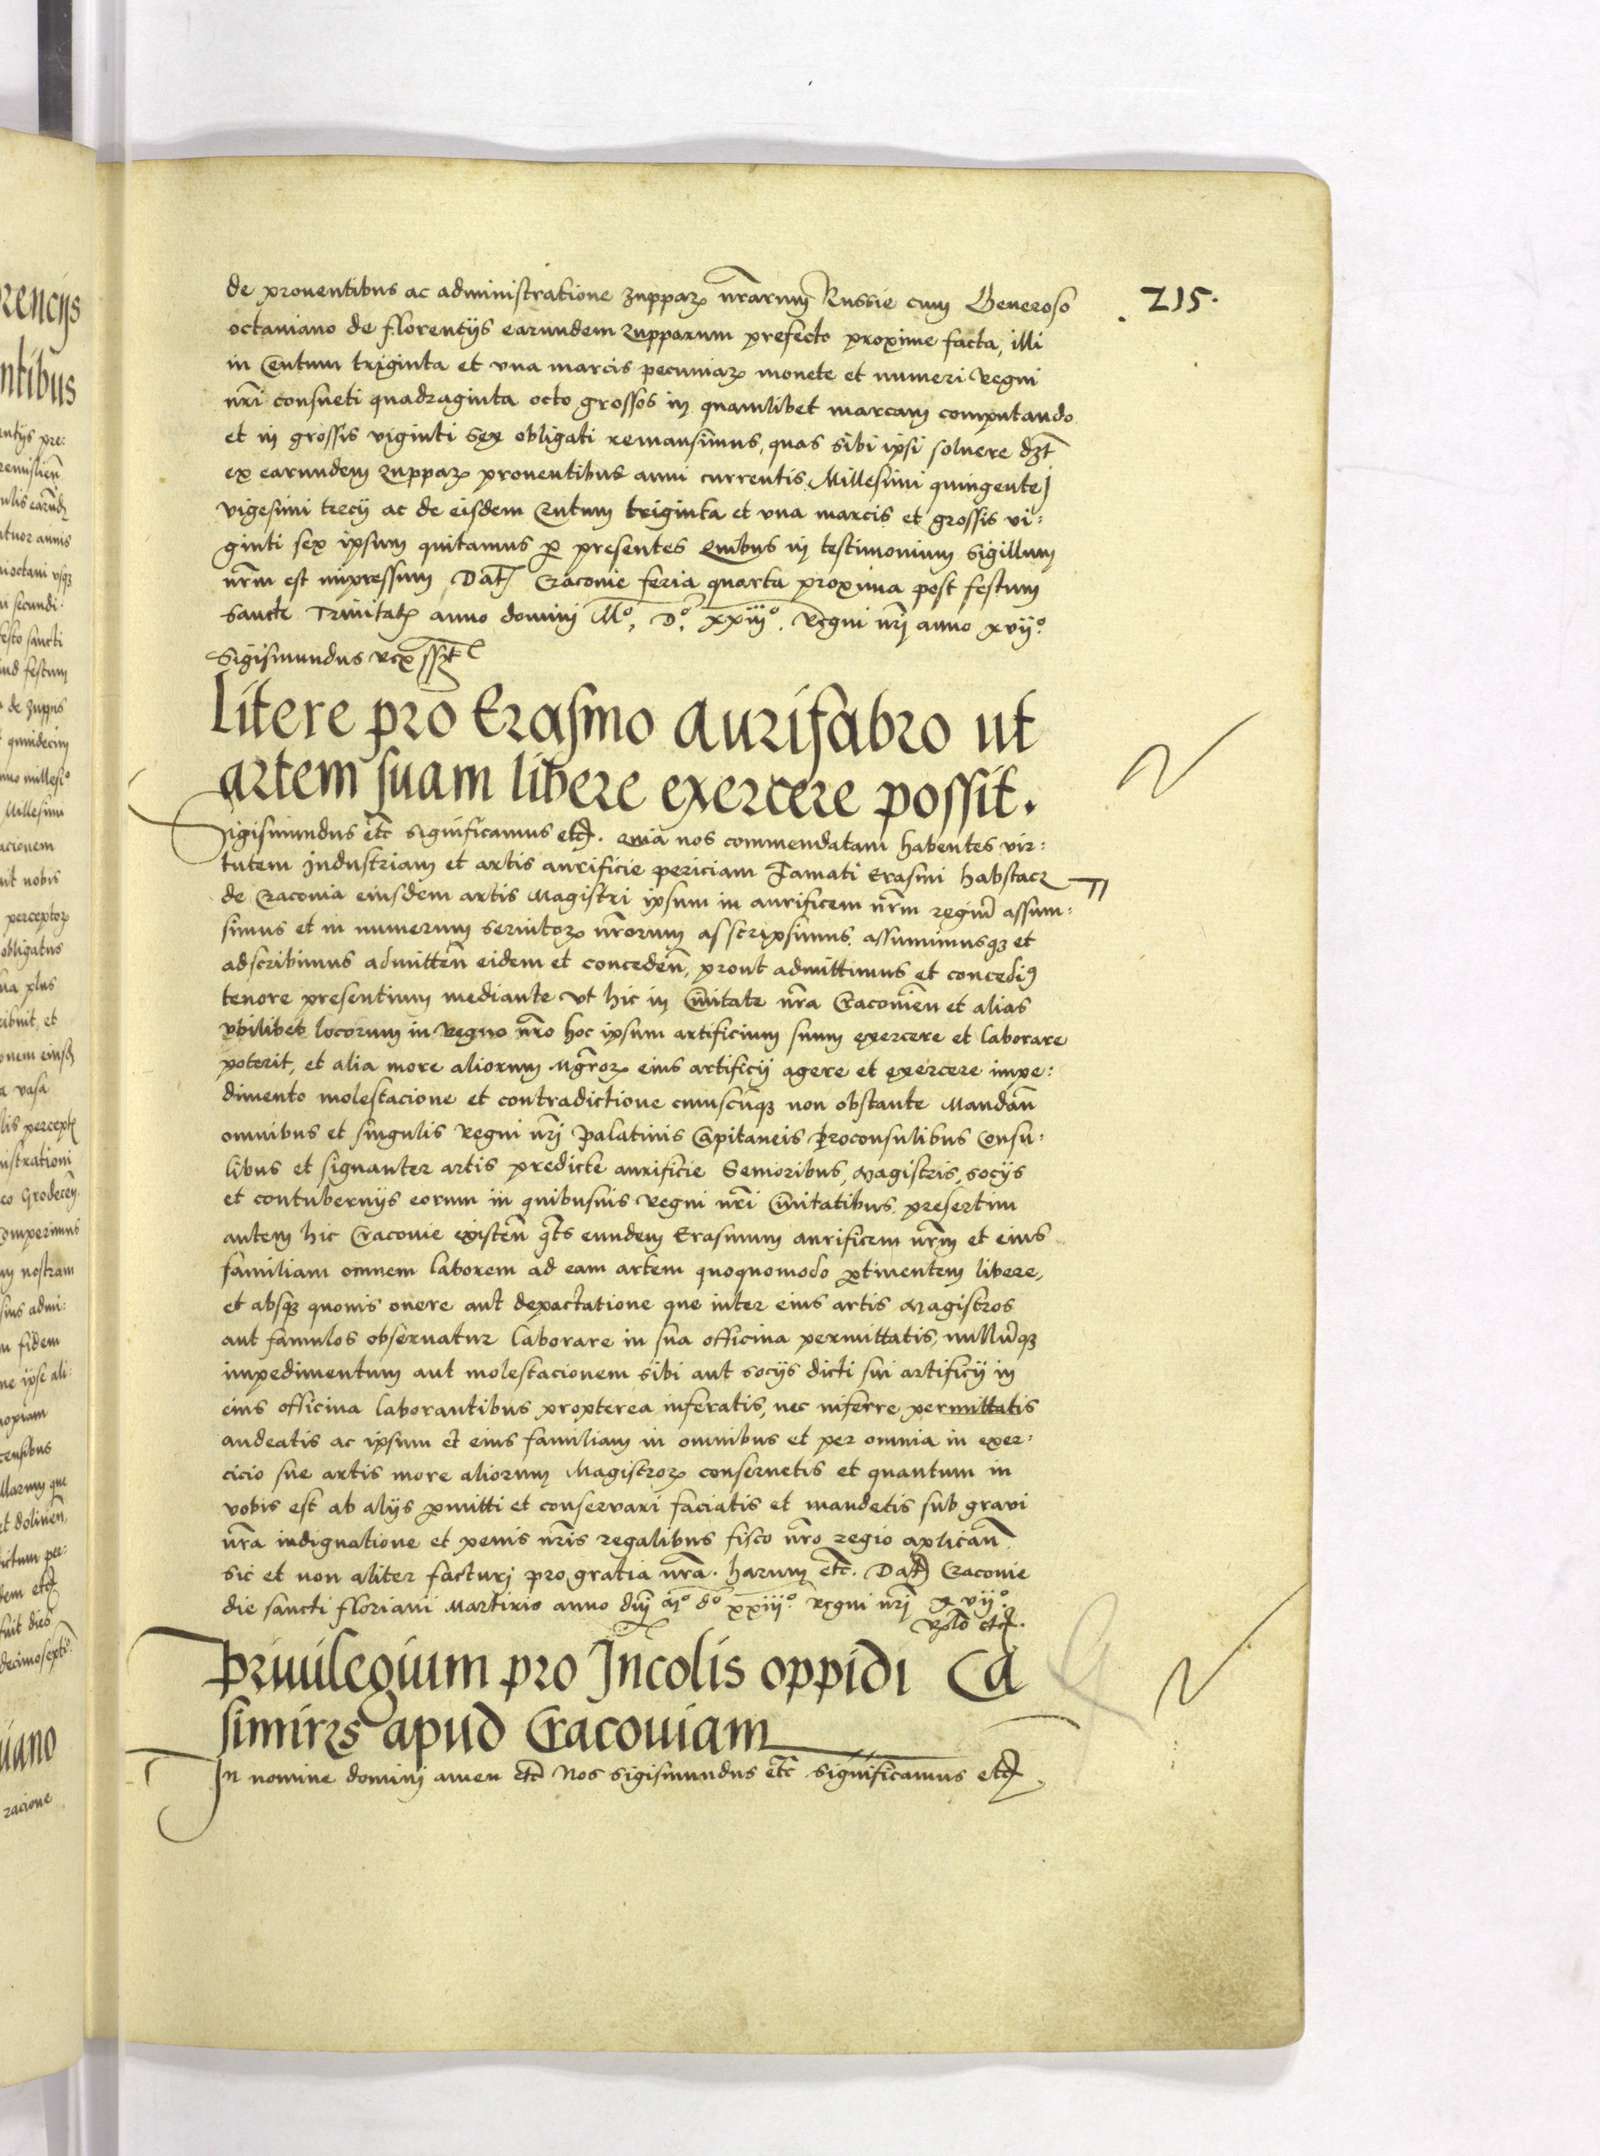 215.
de proventibus ac administratione zupparꝫ nr̄arum Russie cum Generoso
octaviano de florentijs earundem zupparum prefecto proxime facta, illi
in Centum triginta et una marcis pecuniarꝫ monete et numeri Regni
nr̄i consueti quadraginta octo grossos in quamlibet marcam computando
et in grossis viginti sex obligati remansimus, quas sibi ipsi solvere
ex earundem zupparꝫ proventibus anni currentis Millesimi quingente
vigesimi trecij ac de eisdem Centum triginta et una marcis et grossis vi:
ginti sex ipsum quitamus ꝑ presentes Quibus in testimonium Sigillum
nr̄m est impressum, Dat̄ Cracovie feria quarta proxima post festum
Sancte Trinitat̄ anno domini Mº. Dº. xxiijº. Regni nr̄j anno xvijº.
Sigismundus rex sszt
Litere pro Erasmo aurifabro ut
artem suam libere exercere possit.
Sigismundus etc̄ significamus etc̄. quia nos commendatam habentes vir:
tutem industriam et artis aurificie periciam Famati Erasmi habstacz
de Cracovia eiusdem artis Magistri ipsum in aurificem nr̄m regiū assum:
simus et in numerum servitorꝫ nr̄orum asscripsimus assumimusqꝫ et
adscribimus admitten̄ eidem et conceden̄, prout admittimus et concediꝰ
tenore presentium mediante Ut hic in Civitate nr̄a Cracovien̄ et alias
ubilibet locorum in Regno nr̄o hoc ipsum artificium suum exercere et laborare
poterit, et alia more aliorum Mgr̄orꝫ eius artificij agere et exercere impe:
dimento molestacione et contradictione cuiuscūqꝫ non obstante Mandan̄
omnibus et singulis Regni nr̄i Palatinis Capitaneis Proconsulibus Consu:
libus et signanter artis predicte aurificie Senioribus, Magistris, socijs
et contubernijs eorum in quibusvis Regni nr̄i Civitatibus presertim
autem hic Cracovie existen̄ qt̄s eundem Erasmum aurificem nr̄m et eius
familiam omnem laborem ad eam artem quoquomodo ꝑtinentem libere,
et absqꝫ quovis onere aut depactatione que inter eius artis Magistros
aut famulos observatur laborare in sua officina permittatis, nullūqꝫ
impedimentum aut molestacionem sibi aut socijs dicti sui artificij in
eius officina laborantibus propterea inferatis, nec inferre permittatis
audeatis ac ipsum et eius familiam in omnibus et per omnia in exer:
cicio sue artis more aliorum Magistrorꝫ conservetis et quantum in
vobis est ab alijs ꝑmitti et conservari faciatis et mandetis sub gravi
nr̄a indignatione et penis nr̄is regalibus fisco nr̄o regio aplican̄
sic et non aliter facturj pro gratia nr̄a. harum etc̄. Dat̄ Cracovie
die sancti floriani Martiris anno dn̄j mº dº xxiijº. Regni nr̄j xvijº.
Rela͞o etc̄.
Privilegium pro Incolis oppidi Ca
simirzs apud Cracoviam
In nomine dominj amen etc̄ Nos Sigismundus etc̄ significamus etc̄